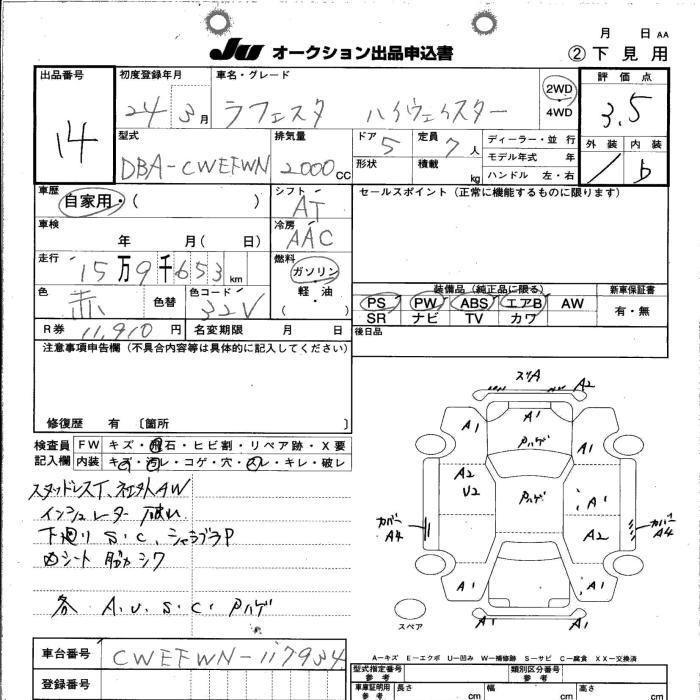 月 日 AA
JU オークション出品申込書 ②下見用
出品番号 初度登録年月 車名・グレード 2WD 評価点
14 24 3月 ラフェスタ ハイウェイスター 4WD 3.5
型式 排気量 ドア 5 定員 7人 ディーラー・並行 外装 内装
DBA-CWEFWN 2000cc 形状 積載 kg モデル年式 年 b
ハンドル 左・右
車歴 シフト セールスポイント(正常に機能するものに限ります)
自家用・( ) AT
車検 冷房
年 月( 日) AAC
走行 燃料
15万9千653km ガソリン 装備品(純正品に限る) 新車保証書
色 色替 色コード 軽・油 PS PW ABS エアB AW 有・無
赤 32V ( ) SR ナビ TV カワ
R券 11,910円 名変期限 月 日 後日品
注意事項申告欄(不具合内容等は具体的に記入してください)
修復歴 有 〔箇所 〕
検査員 FW キズ・飛石・ヒビ割・リペア跡・X要
記入欄 内装 キズ・汚レ・コゲ・穴・スレ・キレ・破レ
スタッドレスT、社外AW
インシュレーター破れ
下廻りS・C、シャシブラP
内シート
各 A.U.S.C.Pハゲ
A2
A1 A1 A1
Pハゲ
A2 U2 Pハゲ A1
カバーA4 A2 カバーA4
A1 A1
A1 A1
スペア
A-キズ E-エクボ U-凹み W-補修跡 S-サビ C-腐食 XX-交換済
車台番号 CWEFWN-117934
型式指定番号 参考 類別区分番号 参考
登録番号 車庫証明用 参考 長さ cm 幅 cm 高さ cm